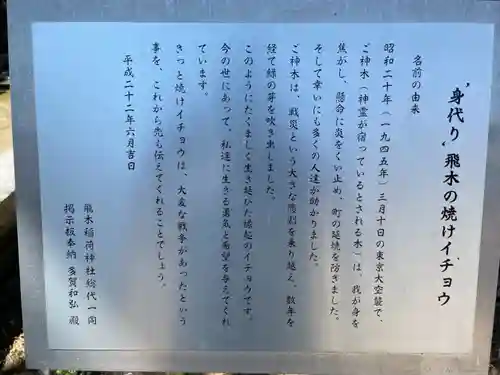 “身代り„飛木の焼けイチョウ
名前の由来
昭和二十年（一九四五年）三月十日の東京大空襲で、
ご神木（神霊が宿っているとされる木）は、我が身を
焦がし、懸命に炎をくい止め、町の延焼を防ぎました。
そして幸いにも多くの人達が助かりました。
ご神木は、戦災という大きな痛割を乗り越え、数年を
経て緑の芽を吹き出しました。
このようにたくましく生き延びた縁起のイチョウです。
今の世にあって、私達に生きる勇気と希望を与えてくれ
ています。
きっと焼けイチョウは、大変な戦争があったという
事を、これから先も伝えてくれることでしょう。
平成二十二年六月吉日
飛木稲荷神社総代一同
掲示板奉納 多賀和弘 殿